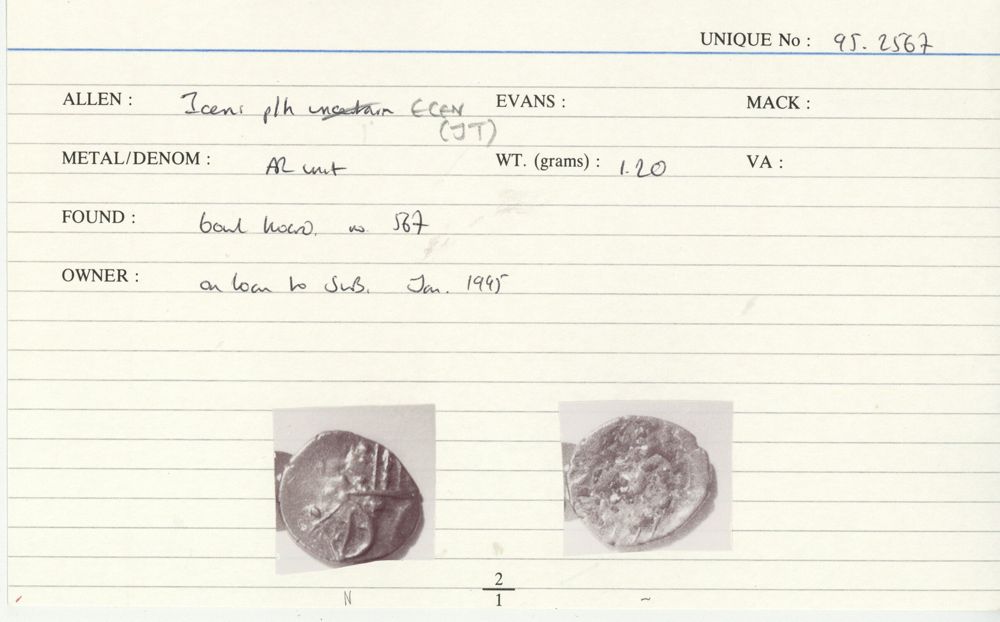 UNIQUE No : 95. 2567
ALLEN : Iceni p/h uncertain ECEN EVANS : MACK :
(JT)
METAL/DENOM : AR unit WT. (grams) : 1.20 VA :
FOUND : bowl hoard. no 567
OWNER : on loan to SWB. Jan. 1995
2
N 1 ~